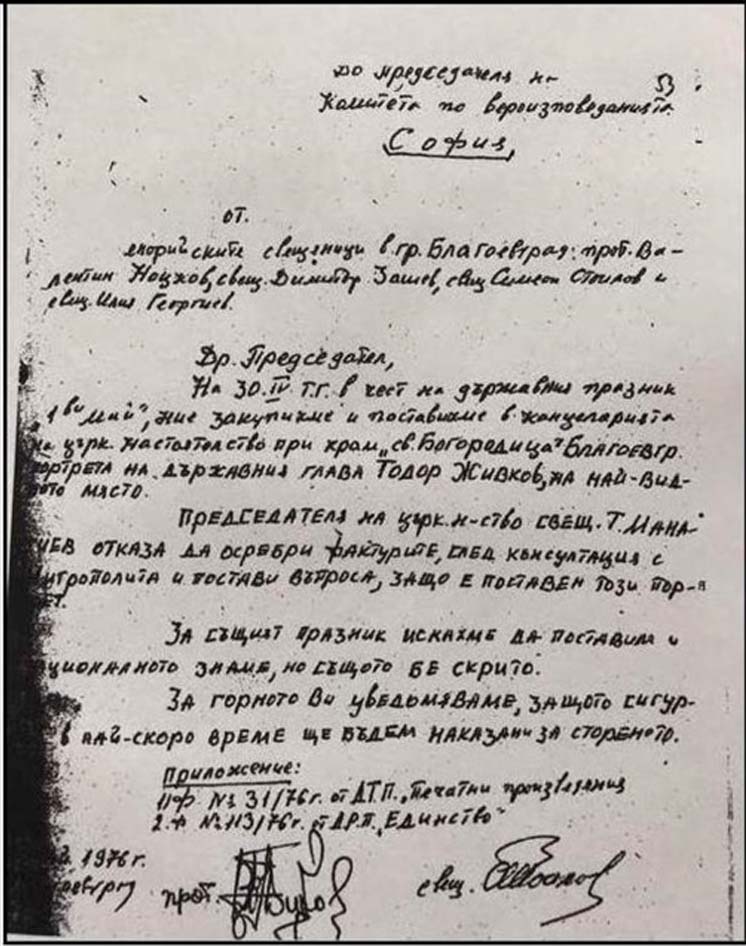 До председателя на
53
Комитета по вероизповеданията
София,
от.
енорийските свещеници в гр. Благоевград: прот. Ва-
лентин Ноцков, свещ. Димитър Зашев, свещ Симеон Стоилов и
свещ. Илия Георгиев.
Др. Председател,
На 30.IV т.г. в чест на държавния празник
„1ви май", ние закупихме и поставихме в канцеларията
на църк. настоятелство при храм „св. Богородица" Благоевгр.
портрета на държавния глава Тодор Живков, на най-вид-
ното място.
Председателя на църк. н-ство свещ. Т. Мана-
иев отказа да осребри фактурите, след консултация с
митрополита и постави въпроса, защо е поставен този пор-
ет.
За същият празник искахме да поставим и
ационалното знаме, но същото бе скрито.
За горното Ви уведомяваме, защото сигур-
в най-скоро време ще бъдем наказани за стореното.
Приложение:
1) ф. № 31/76 г. от ДТП. „Печатни произведения
2. ф № 113/76 г. от ДРП. „Единство"
1976 г.
прот.
свещ.